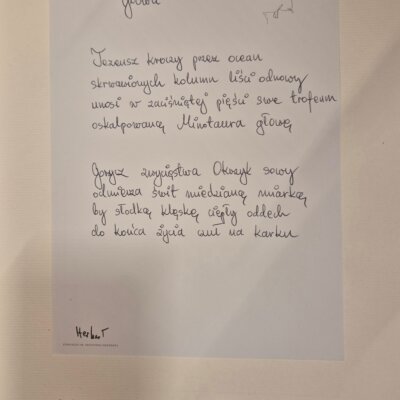 Głowa
Tezeusz kroczy przez ocean
skrwawionych kolumn liści odnowy
unosi w zaciśniętej pięści swe trofeum
oskalpowaną Minotaura głowę
Gorycz zwycięstwa Okrzyk sowy
odmierza świt miedzianą miarką
by słodką klęskę ciepły oddech
do końca życia czuł na karku
Herbert
FUNDACJA IM. ZBIGNIEWA HERBERTA